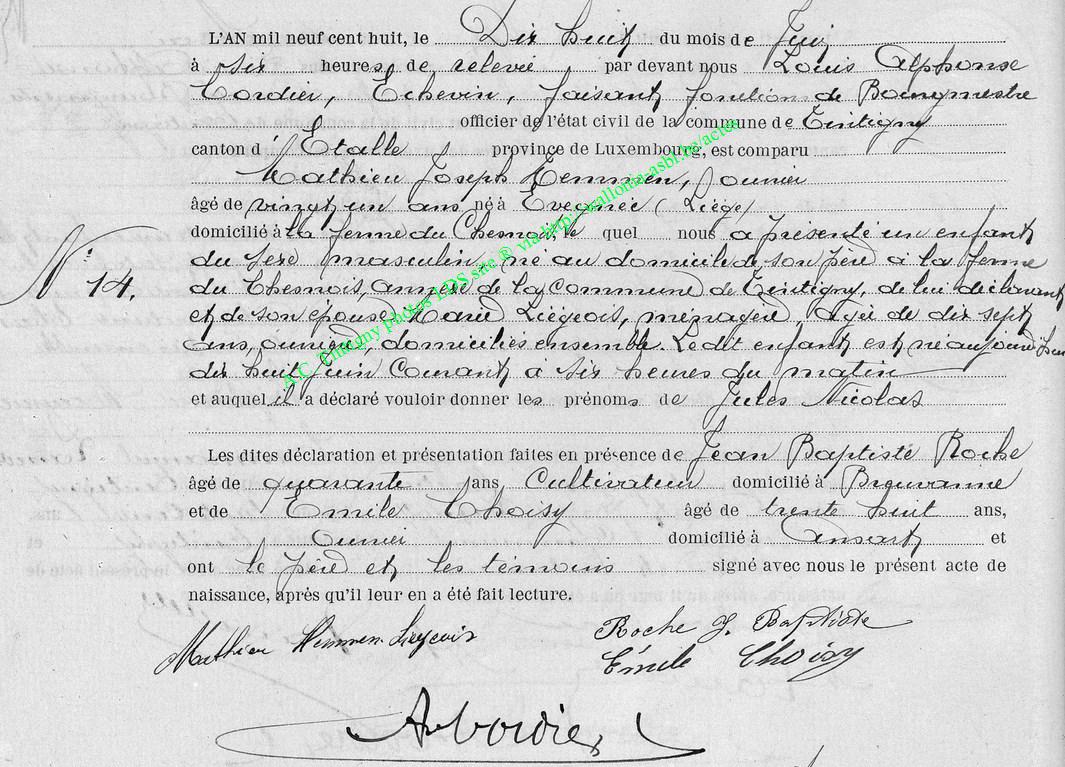 L'AN mil neuf cent huit, le Dix huit du mois de Juin
à six heures de relevée par devant nous Louis Alphonse
Cordier, Echevin, faisant fonctions de Bourgmestre
officier de l'état civil de la commune de Tintigny
canton d'Etalle province de Luxembourg, est comparu
Mathieu Joseph Hemmen, ouvrier
âgé de vingt un ans né à Evegnée (Liége)
domicilié à la ferme du Chesnois, le quel nous a présenté un enfant
du sexe masculin, né au domicile de son père à la ferme
N° 14.
du Chesnois, annexe de la Commune de Tintigny, de lui déclarant
et de son épouse Marie Liégeois, ménagère, agée de dix sept
ans, ouvrière, domiciliés ensemble. Le dit enfant est né aujourd'hui
dix huit juin Courant a six heures du matin
et auquel il a déclaré vouloir donner les prénoms de Jules Nicolas
Les dites déclaration et présentation faites en présence de Jean Baptiste Roche
âgé de quarante ans Cultivateur domicilié à Breuvanne
et de Emile Choisy âgé de trente huit ans,
Ouvrier domicilié à Ansart et
ont le père et les témoins signé avec nous le présent acte de
naissance, après qu'il leur en a été fait lecture.
Mathieu Hemmen Liegeois
Roche J. Baptiste
Émile Choisy
A Cordier
A.C. Tintigny photos LDS site ® via http://wallonia-asbl.be/actes